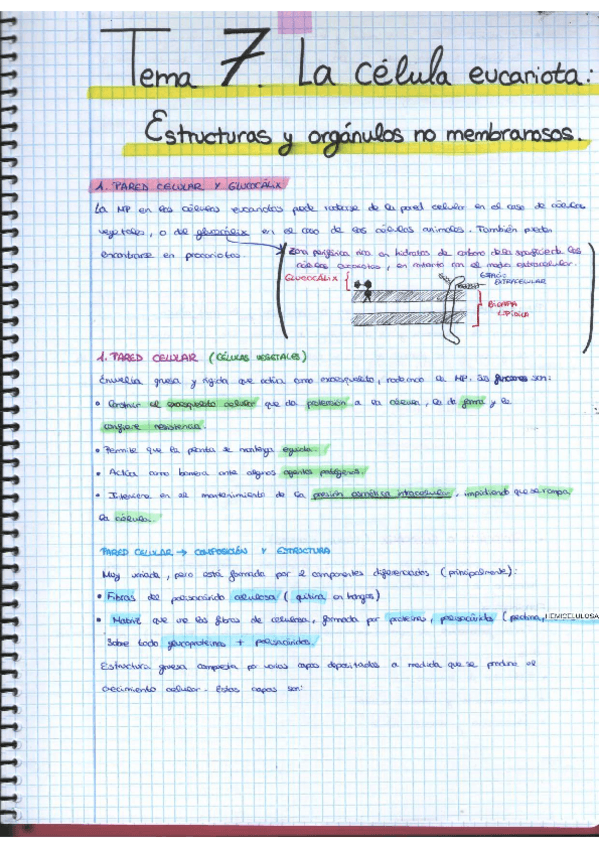 Tema 7. La célula eucariota:
Estructuras y orgánulos no membranosos.
1. PARED CELULAR Y GLUCOCÁLIX
La MP en las células eucariotas puede rodearse de la pared celular en el caso de células
vegetales, o de glucocálix en el caso de las células animales. También puede
encontrarse en procariotas.
Zona periférica rica en hidratos de carbono de la superficie de las
células eucariotas, en contacto con el medio extracelular.
GLUCOCÁLIX
ESPACIO
EXTRACELULAR
BICAPA
LIPÍDICA
1. PARED CELULAR (CÉLULAS VEGETALES)
Envuelta gruesa y rígida que actúa como exoesqueleto, rodeando la MP. Sus funciones son:
• Construir el exoesqueleto celular que da protección a la célula, le da forma y le
confiere resistencia.
• Permite que la planta se mantenga erguida.
• Actúa como barrera ante algunos agentes patógenos.
• Interviene en el mantenimiento de la presión osmótica intracelular, impidiendo que se rompa
la célula.
PARED CELULAR → COMPOSICIÓN Y ESTRUCTURA
Muy variada, pero está formada por 2 componentes diferenciados (principalmente):
• Fibras del polisacárido celulosa (quitina en hongos)
• Matriz que une las fibras de celulosa, formada por proteínas, polisacáridos (pectina, HEMICELULOSA
Sobre todo glucoproteínas + polisacáridos.
Estructura gruesa compuesta por varias capas depositadas a medida que se produce el
crecimiento celular. Estas capas son: